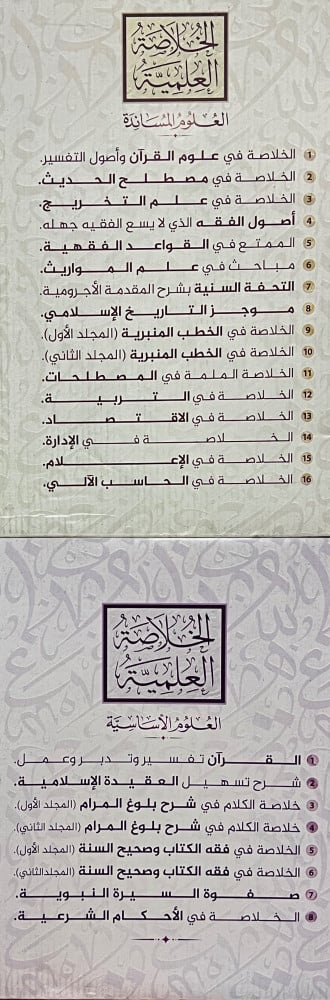 الخلاصة
العلمية
العلوم المساندة
1 الخلاصة في علوم القرآن وأصول التفسير.
2 الخلاصة في مصطلح الحديث.
3 الخلاصة في علم التخريج.
4 أصول الفقه الذي لا يسع الفقيه جهله.
5 الممتع في القواعد الفقهية.
6 مباحث في علم المواريث.
7 التحفة السنية بشرح المقدمة الأجرومية.
8 موجز التاريخ الإسلامي.
9 الخلاصة في الخطب المنبرية (المجلد الأول).
10 الخلاصة في الخطب المنبرية (المجلد الثاني).
11 الخلاصة الملمة في المصطلحات.
12 الخلاصة في التربية.
13 الخلاصة في الاقتصاد.
14 الخلاصة في الإدارة.
15 الخلاصة في الإعلام.
16 الخلاصة في الحاسب الآلي.
الخلاصة
العلمية
العلوم الأساسية
1 القرآن تفسير وتدبر وعمل.
2 شرح تسهيل العقيدة الإسلامية.
3 خلاصة الكلام في شرح بلوغ المرام (المجلد الأول).
4 خلاصة الكلام في شرح بلوغ المرام (المجلد الثاني).
5 الخلاصة في فقه الكتاب وصحيح السنة (المجلد الأول).
6 الخلاصة في فقه الكتاب وصحيح السنة (المجلد الثاني).
7 صفوة السيرة النبوية.
8 الخلاصة في الأحكام الشرعية.